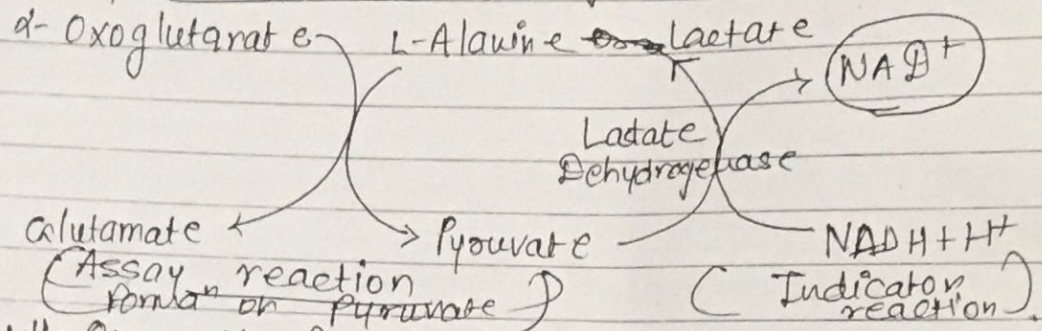 α- Oxoglutarate L-Alanine Lactate NAD+
Lactate
Dehydrogenase
Glutamate Pyouvate NADH+H+
(Assay reaction Indicator
on Pyruvate) reaction).